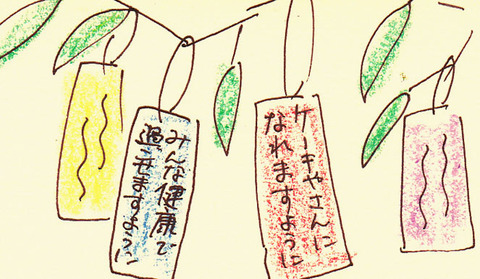 みんな健康で
過せますように
ケーキやさんに
なれますように